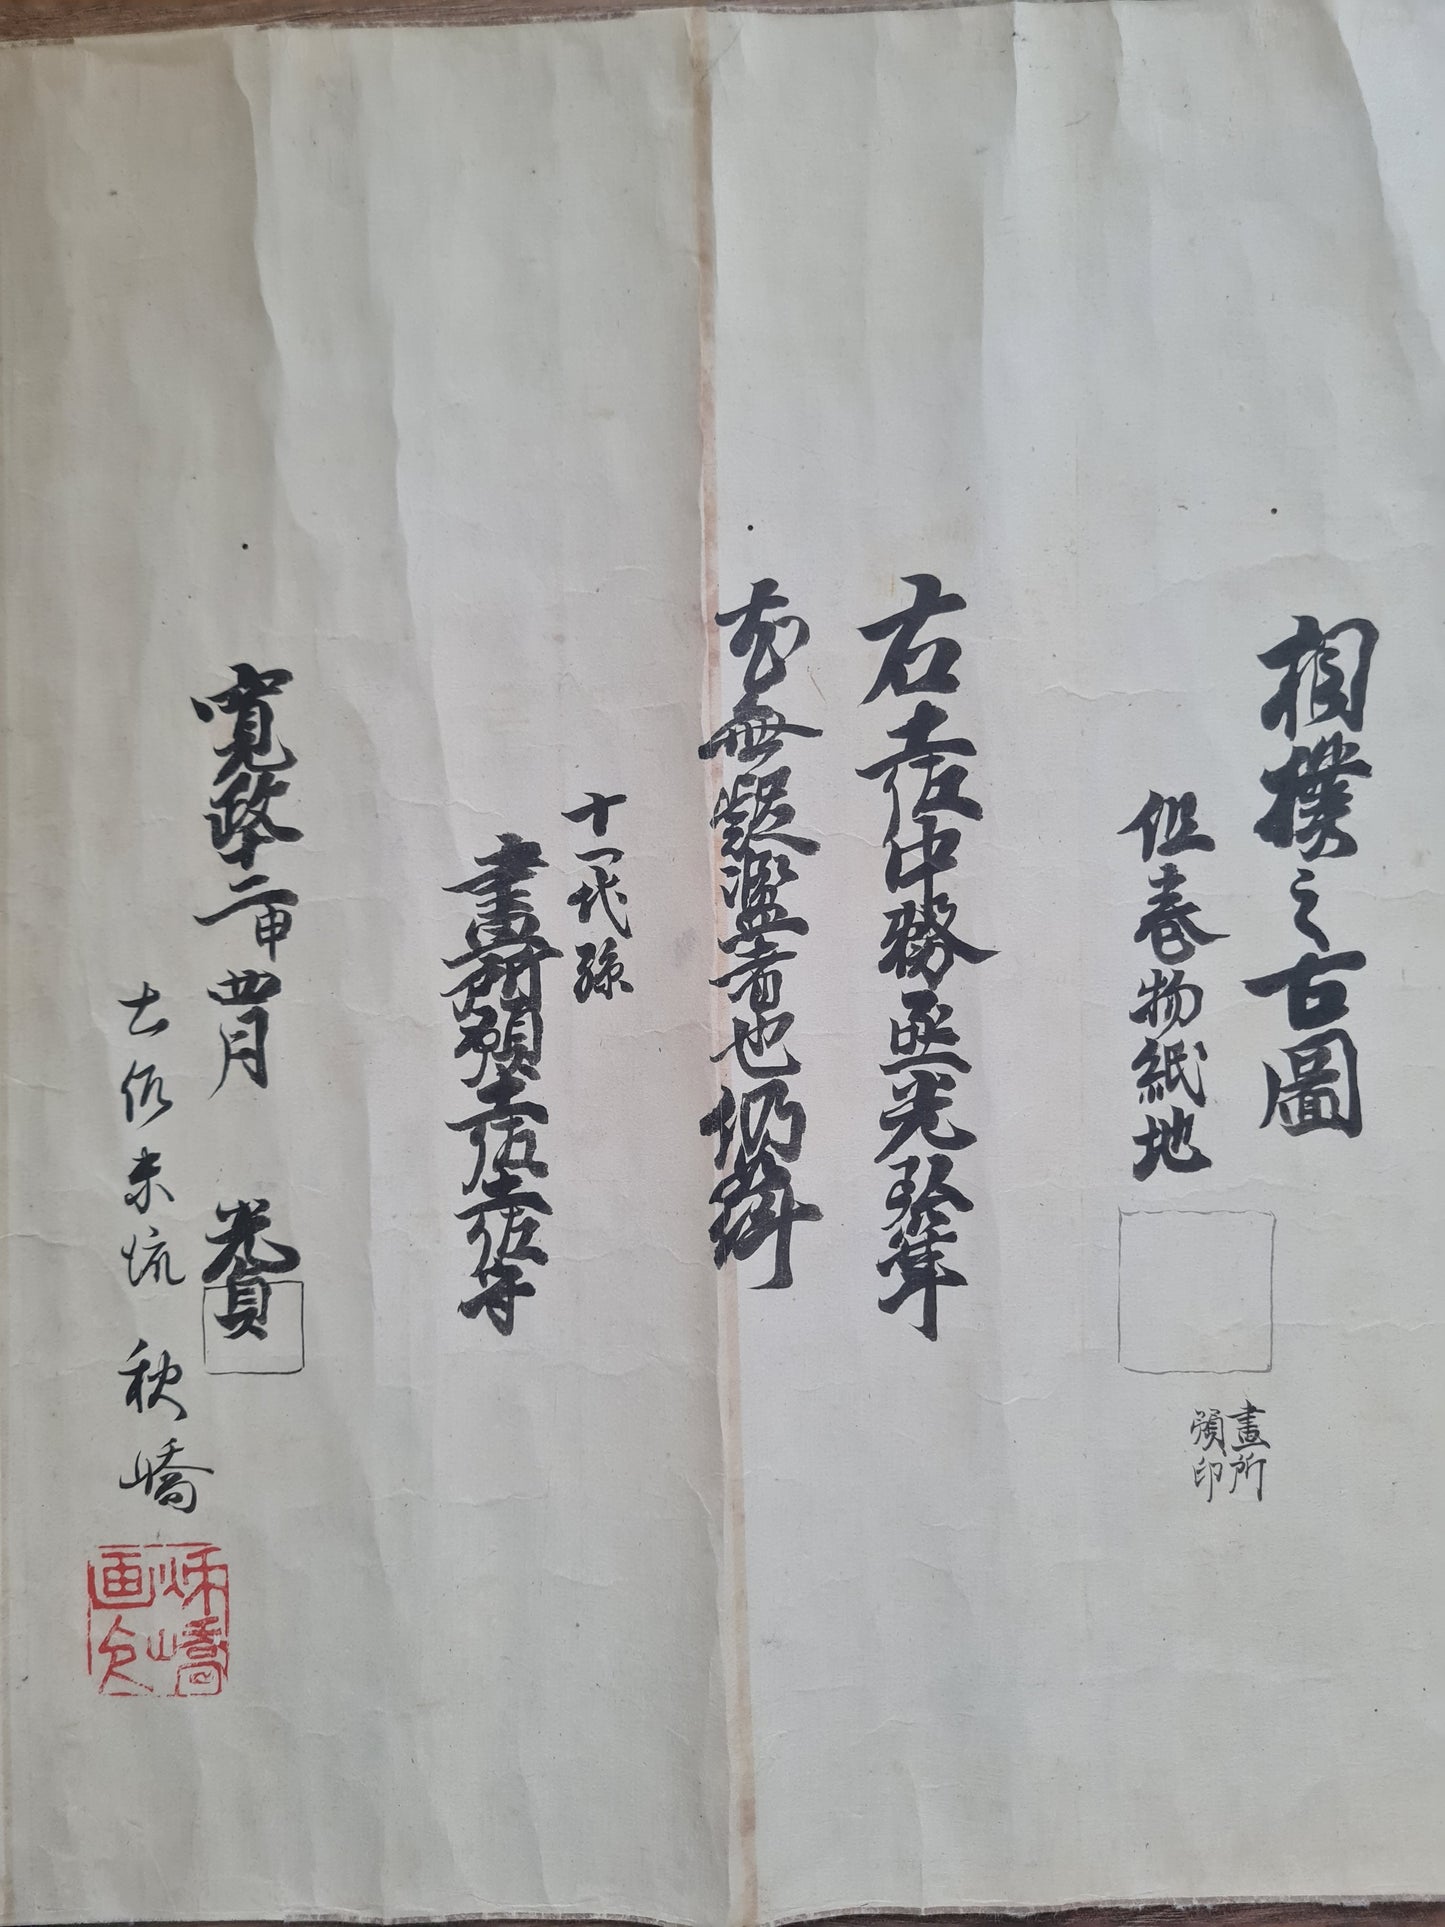 相撲之古圖
但巻物紙地
畫所
預印
右土佐中務丞光筆
尤無疑濫者也仍
十一代孫
畫所預土佐土佐守
寛政十二申四月 光貞
土佐末流 秋嶠
秌嶠
画